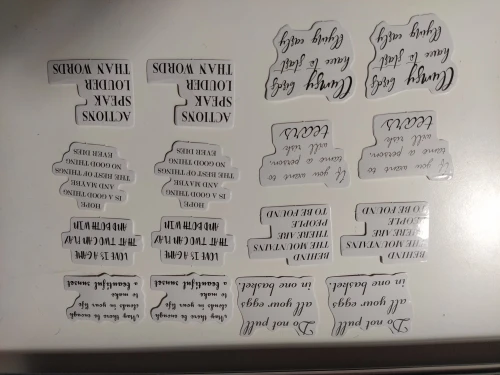 Do not pull
all your eggs
in one basket.
Do not pull
all your eggs
in one basket.
May there be enough
clouds in your life
to make
a beautiful sunset
May there be enough
clouds in your life
to make
a beautiful sunset
BEHIND
THE MOUNTAINS
THERE ARE
PEOPLE
TO BE FOUND
BEHIND
THE MOUNTAINS
THERE ARE
PEOPLE
TO BE FOUND
LOVE IS A GAME
THAT TWO CAN PLAY
AND BOTH WIN
LOVE IS A GAME
THAT TWO CAN PLAY
AND BOTH WIN
If you want to
tame a person
will risk
tears
If you want to
tame a person
will risk
tears
HOPE
IS A GOOD THING
AND MAYBE
THE BEST OF THINGS
NO GOOD THING
EVER DIES
HOPE
IS A GOOD THING
AND MAYBE
THE BEST OF THINGS
NO GOOD THING
EVER DIES
Clumsy birds
have to start
flying early
Clumsy birds
have to start
flying early
ACTIONS
SPEAK
LOUDER
THAN WORDS
ACTIONS
SPEAK
LOUDER
THAN WORDS